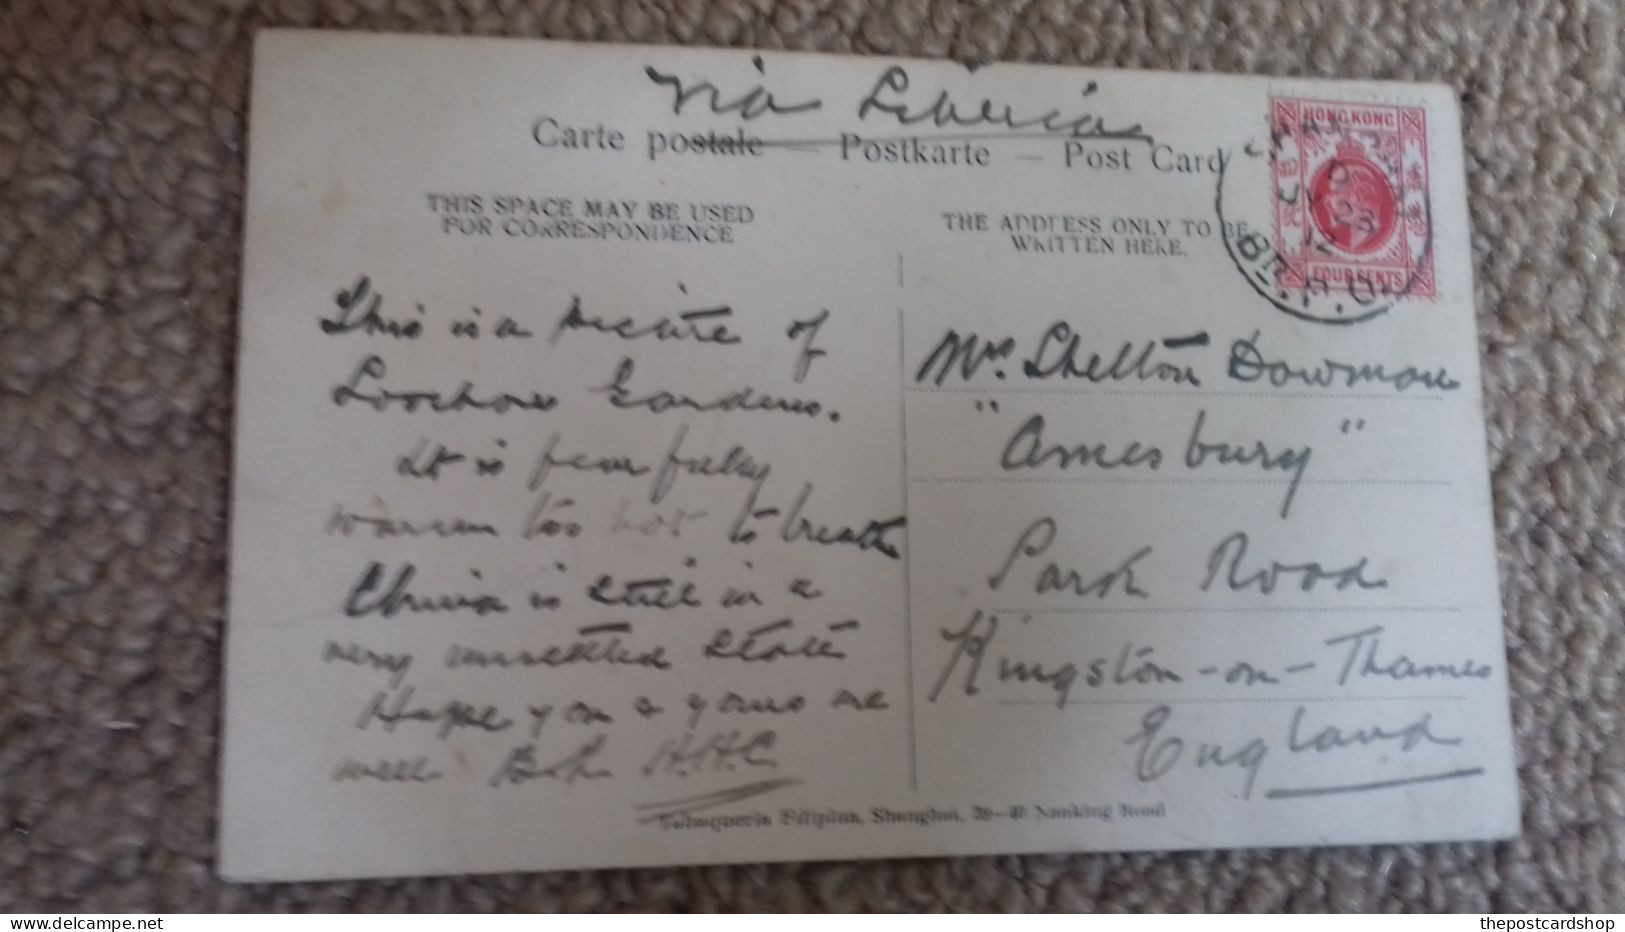 Via Siberia
Carte postale — Postkarte — Post Card
THIS SPACE MAY BE USED
FOR CORRESPONDENCE
THE ADDRESS ONLY TO BE
WRITTEN HERE.
HONG KONG
FOUR CENTS
23
12
BR. P.O.
This is a picture of
Loochow Gardens.
It is fearfully
warm too hot to breathe
China is still in a
very unsettled state
Hope you & yours are
well H.H.C
Mrs. Shelton Dowman
"Amesbury"
Park Road
Kingston-on-Thames
England
Tabaqueria Filipina, Shanghai, 39—40 Nanking Road
delcampe.net
thepostcardshop